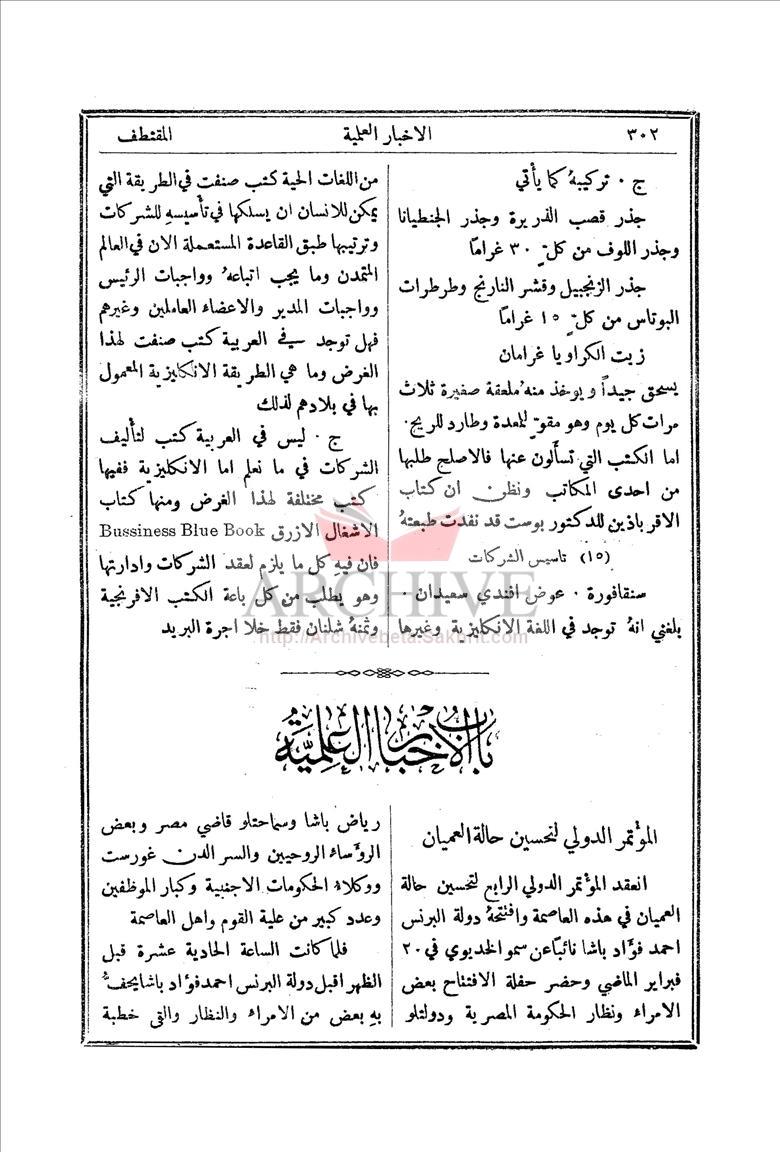 ٣٠٢ الاخبار العلمية المقتطف
ج ٠ تركيبهُ كما يأتي
جذر قصب الذريرة وجذر الجنطيانا
وجذر اللوف من كلٍّ ٣٠ غرامًا
جذر الزنجبيل وقشر النارنج وطرطرات
البوتاس من كلٍّ ١٥ غرامًا
زيت الكراويا غرامان
يسحق جيداً ويوخذ منهُ ملعقة صغيرة ثلاث
مرات كل يوم وهو مقوٍّ للمعدة وطارد للريح ٠
اما الكتب التي تسأَلون عنها فالاصلح طلبها
من احدى المكاتب ونظن ان كتاب
الاقرباذين للدكتور بوست قد نفدت طبعتهُ
(١٥) تاسيس الشركات
سنقافورة ٠ عوض افندي سعيدان ٠
بلغني انهُ توجد في اللغة الانكليزية وغيرها
من اللغات الحية كتب صنفت في الطريقة التي
يمكن للانسان ان يسلكها في تأسيسهِ للشركات
وترتيبها طبق القاعدة المستعملة الان في العالم
المتمدن وما يجب اتباعهُ وواجبات الرئيس
وواجبات المدير والاعضاء العاملين وغيرهم
فهل توجد في العربية كتب صنفت لهذا
الغرض وما هي الطريقة الانكليزية المعمول
بها في بلادهم لذلك
ج ٠ ليس في العربية كتب لتأليف
الشركات في ما نعلم اما الانكليزية ففيها
كتب مختلفة لهذا الغرض ومنها كتاب
الاشغال الازرق Bussiness Blue Book
فان فيهِ كل ما يلزم لعقد الشركات وادارتها
وهو يطلب من كل باعة الكتب الافرنجية
وثمنهُ شلنان فقط خلا اجرة البريد
ARCHIVE
http://Archivebeta.Sakhrit.com
باب الاخبار العلمية
المؤتمر الدولي لتحسين حالة العميان
انعقد المؤتمر الدولي الرابع لتحسين حالة
العميان في هذه العاصمة وافتتحهُ دولة البرنس
احمد فؤاد باشا نائبًا عن سمو الخديوي في ٢٠
فبراير الماضي وحضر حفلة الافتتاح بعض
الامراء ونظار الحكومة المصرية ودولتلو
رياض باشا وسماحتلو قاضي مصر وبعض
الرؤساء الروحيين والسر الدن غورست
ووكلاء الحكومات الاجنبية وكبار الموظفين
وعدد كبير من علية القوم واهل العاصمة
فلما كانت الساعة الحادية عشرة قبل
الظهر اقبل دولة البرنس احمد فؤاد باشا يحفُّ
بهِ بعض من الامراء والنظار والتى خطبة